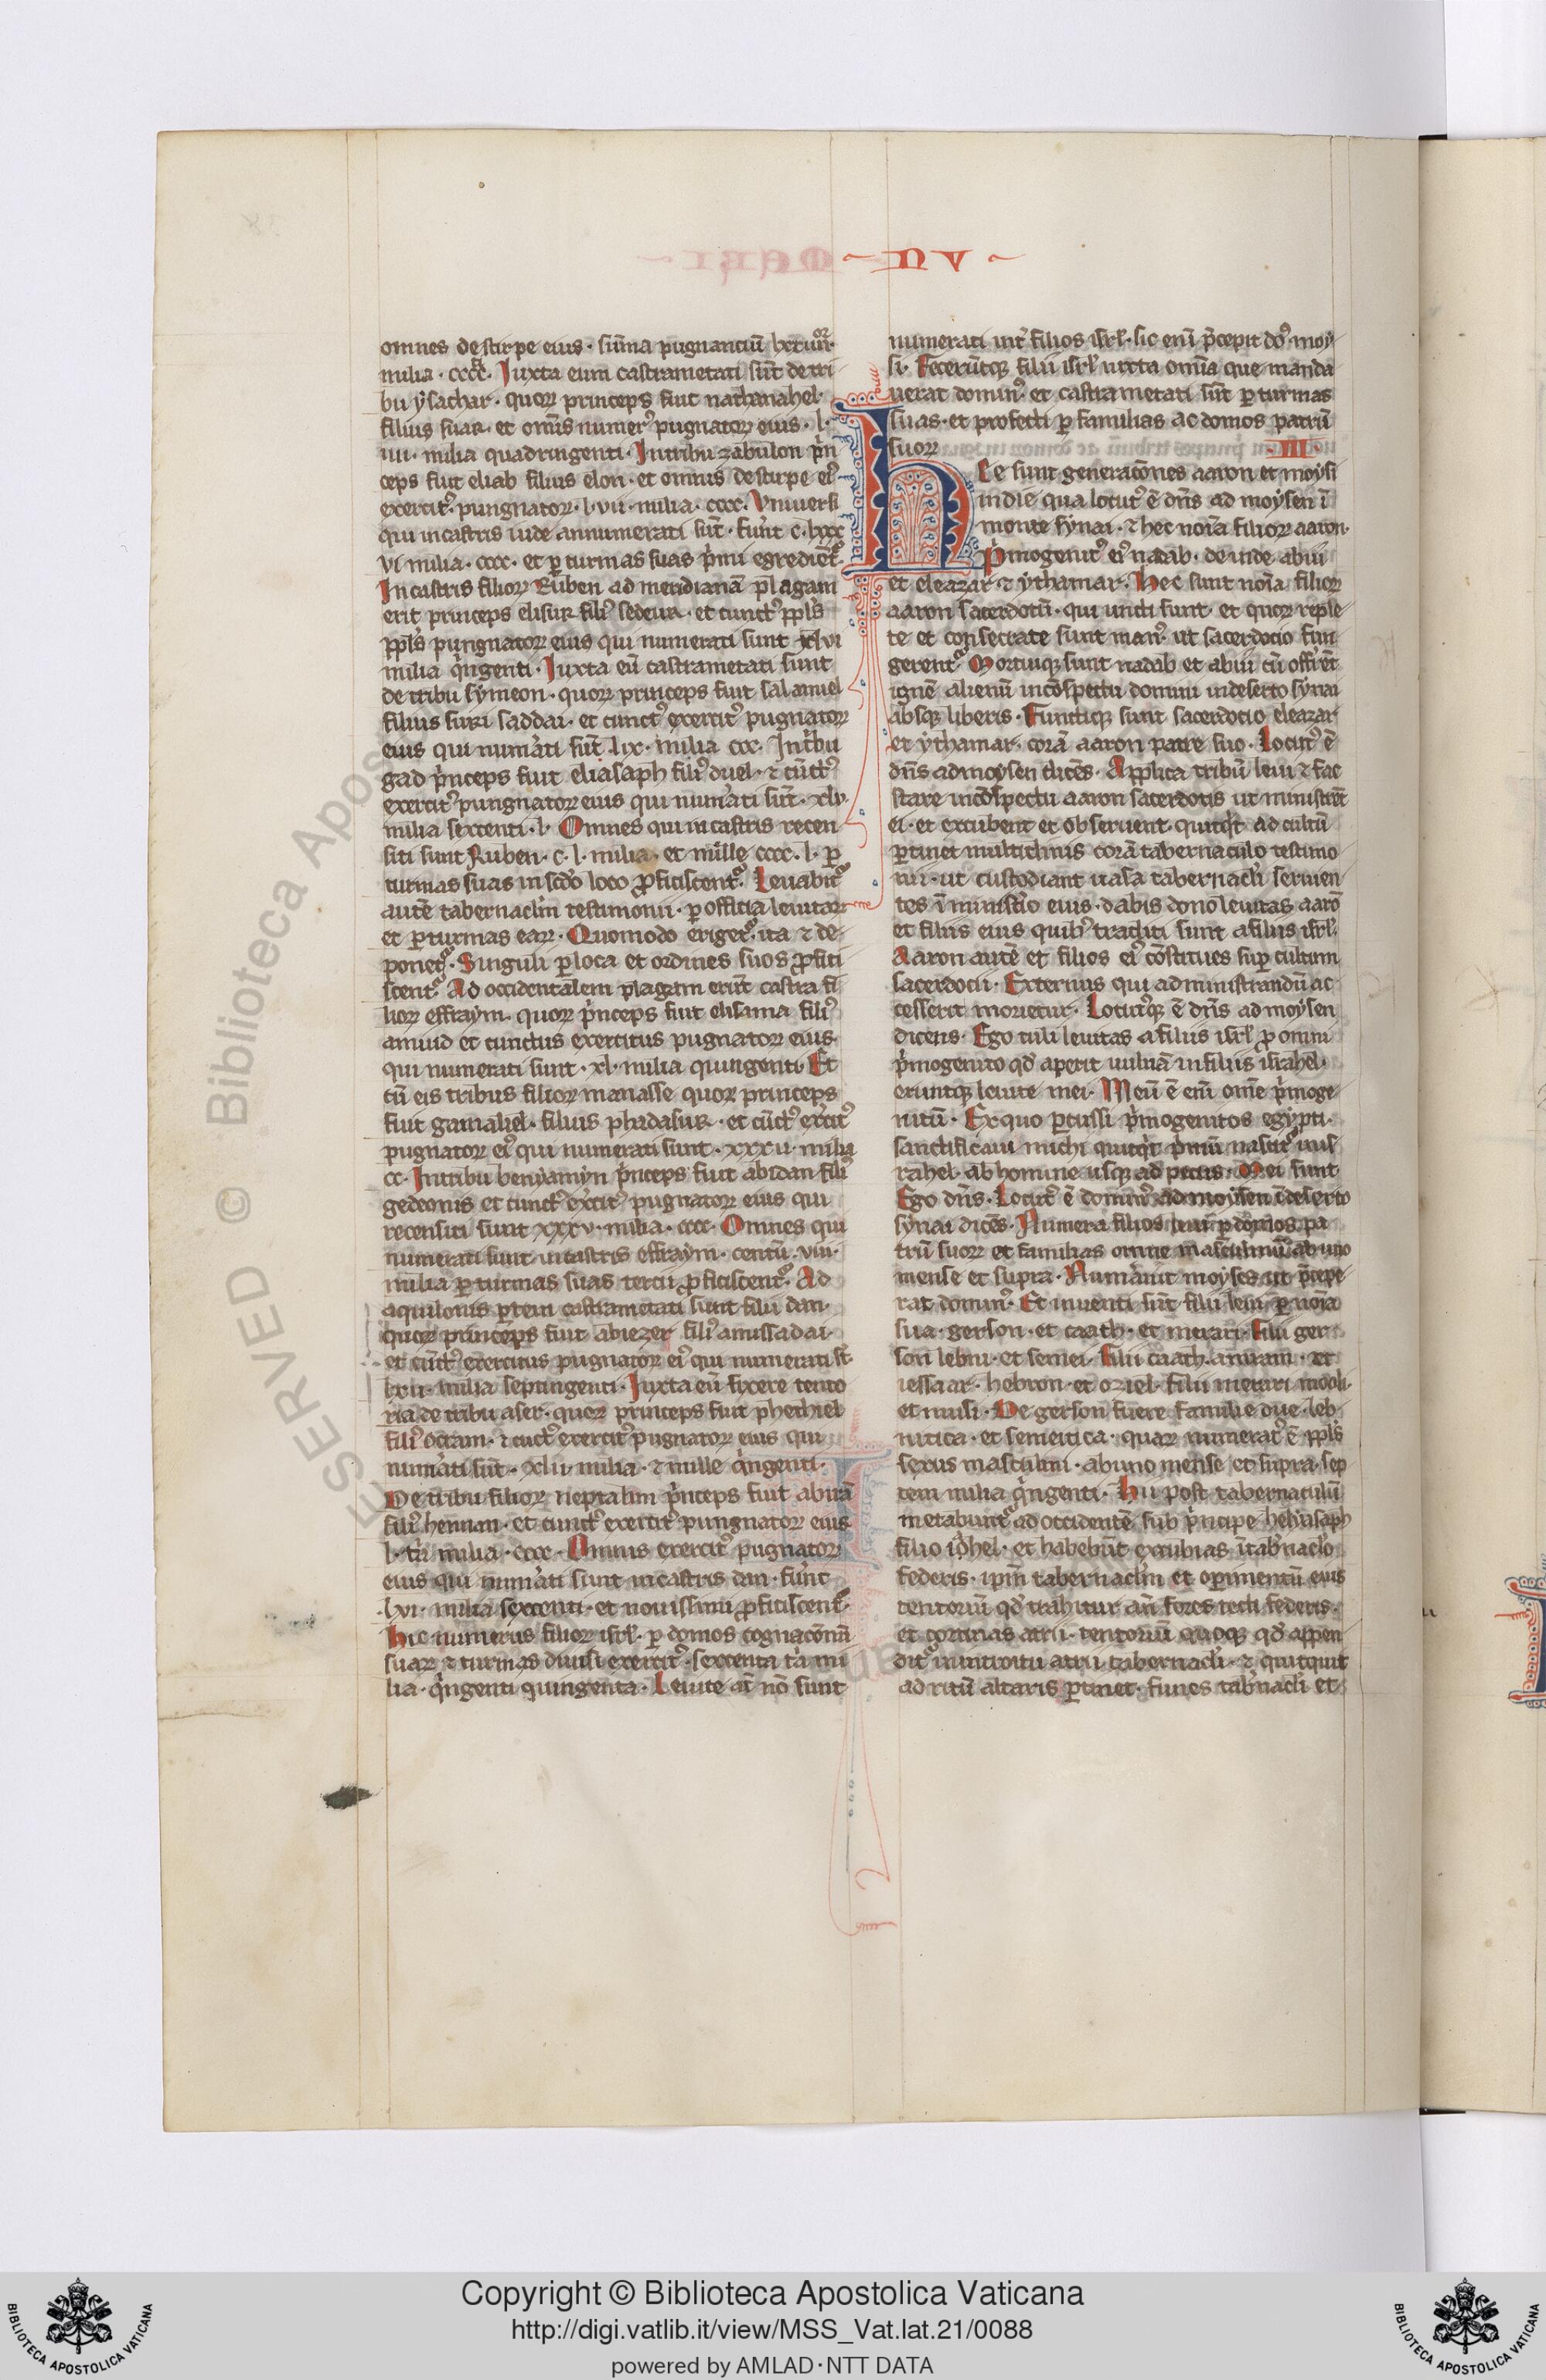 NV
omnes de stirpe eius · sum̄a pugnanciū lxxiiii
milia · cccc · Iuxta eum castrametati sūt de tri
bu ysachar · quoꝝ princeps fuit nathanahel ·
filius suar · et om̄is numerꝰ pugnatoꝝ eius · l ·
iiii · milia quadringenti · In tribu zabulon p̄n
ceps fuit eliab filius elon · et omnis de stirpe eiꝰ
exercitꝰ pungnatoꝝ · l · vii · milia · cccc · Vniuersi
qui in castris iude annumerati sūt · fuīt c · lxxx
vi milia · cccc · et ꝑ turmas suas p̄mi egrediēt᷑
In castris filioꝝ Ruben ad meridianā plagam
erit princeps elisur filiꝰ sedeur · et cunctꝰ ppl̄s
ppl̄s pungnatoꝝ eius qui numerati sunt xlvi
milia q̄ngenti · Iuxta eū castrametati sunt
de tribu symeon · quoꝝ princeps fuit salamiel
filius suri saddai · et cunctꝰ exercitꝰ pugnatoꝝ
eius qui num̄ati sūt lix · milia ccc · In t̄bu
gad p̄nceps fuit eliasaph filiꝰ duel · ⁊ cūctꝰ
exercitꝰ pungnatoꝝ eius qui num̄ati sūt · xlv ·
milia sexcenti · l · Omnes qui in castris recen
siti sunt Ruben · c · l · milia · et mille cccc · l · ꝑ
turmas suas in scd̄o loco ꝓficiscent᷑ · Leuabit᷑
autē tabernacl̄m testimonii · ꝑ officia leuitaꝝ
et ꝑ turmas eaꝝ · Quomodo eriget᷑ · ita ⁊ de
ponet᷑ · Singuli ꝑ loca et ordines suos ꝓfici
scent᷑ · Ad occidentalem plagam erūt castra fi
lioꝝ effraym · quoꝝ p̄nceps fuit elisama filiꝰ
amiud et cunctus exercitus pugnatoꝝ eius ·
qui numerati sunt · xl · milia quingenti · Et
cū eis tribus filioꝝ manasse quoꝝ princeps
fuit gamaliel · filius phadasur · et cūctꝰ ex̄citꝰ
pugnatoꝝ eiꝰ qui numerati sunt · xxxii · milia
cc · In tribu benyamyn p̄nceps fuit abidan filiꝰ
gedeonis et cunctꝰ ex̄citꝰ pugnatoꝝ eius qui
recensiti sunt xxxv · milia · cccc · Omnes qui
numerati sunt in castris effraym · centū · viii ·
milia ꝑ turmas suas tercii ꝓficiscent᷑ · Ad
aquilonis ꝑtem castrametati sunt filii dan ·
quoꝝ princeps fuit abiezer filiꝰ amissadai ·
et cūctꝰ exercitus pugnatoꝝ eiꝰ qui numerati st̄
lxii · milia septingenti · Iuxta eū fixere tento
ria de tribu aser · quoꝝ princeps fuit phethiel
filiꝰ octam · ⁊ cūctꝰ exercitꝰ pugnatoꝝ eius qui
num̄ati sūt · xlii milia · ⁊ mille q̄ngenti ·
De tribu filioꝝ neptalim p̄nceps fuit ahira
filiꝰ hennan · et cunctꝰ exercitꝰ pungnatoꝝ eius
l · t̄a milia · cccc · Omnis exercitꝰ pugnatoꝝ
eius qui num̄ati sunt in castris dan · fuīt
· lvi · milia sexcenti · et nouissimi ꝓficiscent᷑ ·
Hic numerus filioꝝ isrl̄ · ꝑ domos cognacōnū
suaꝝ ⁊ turmas diuisi exercitꝰ · sexcenta t̄a mi
lia · q̄ngenti quingenta · Leuite aūt nō sunt
numerati int̄ filios isrl̄ · sic enī p̄cepit dō moy
si · Feceruntqꝫ filii isrl̄ iuxta om̄ia que manda
uerat dominꝰ · et castrametati sūt ꝑ turmas
suas · et profecti ꝑ familias ac domos patrū
suoꝝ
· III ·
Hee sunt generacōnes aaron et moysi
in die qua locutꝰ ē dn̄s ad moysen ī
monte synai · ⁊ hec noīa filioꝝ aaron ·
P̄mogenitꝰ eiꝰ nadab · deinde abiu
et eleazar ⁊ ythamar · Hec sunt noīa filioꝝ
aaron sacerdotū · qui uncti sunt · et quoꝝ reple
te et consecrate sunt manꝰ · ut sacerdocio fun
gerent᷑ · Mortuiqꝫ sunt nadab et abiu cū offr̄ēt
ignē alienū in cōspectu domini in deserto synai
absqꝫ liberis · Functiqꝫ sunt sacerdocio eleazar
et ythamar · corā aaron patre suo · Locutꝰ ē
dn̄s ad moysen dicēs · Applica tribū leui ⁊ fac
stare in cōspectu aaron sacerdotis ut ministrēt
ei · et excubent et obseruent · quicq̄t ad cultū
ꝑtinet multitudinis corā tabernaculo testimo
nii · ut custodiant uasa tabernacl̄i seruien
tes ī ministīo eius · dabis dono leuitas aarō
et filiis eius quibꝰ traditi sunt a filiis isrl̄ ·
Aaron autē et filios eiꝰ cōstitues suꝑ cultum
sacerdocii · Externus qui ad ministrandū ac
cesserit morietur · Locutꝰqꝫ ē dn̄s ad moysen
dicens · Ego tuli leuitas a filiis isrl̄ ꝓ omni
p̄mogenito qd̄ aperit uuluā in filiis israhel ·
eruntqꝫ leuite mei · Meū ē enī om̄e p̄moge
nitū · Ex quo ꝑcussi p̄mogenitos egypti ·
sanctificaui michi quicq̄t p̄mū nascit᷑ in is
rahel · ab homine usqꝫ ad pecus · Mei sunt
Ego dn̄s · Locutꝰ ē dominꝰ ad moysen ī deserto
synai dicēs · Numera filios leui ꝑ domos pa
trū suoꝝ et familias omne masculinū ab uno
mense et supra · Num̄auit moyses ut p̄cepe
rat dominꝰ · Et inuenti sūt filii leui ꝑ noīa
sua · gerson · et caath · et merari · Filii ger
son lebni · et semei · Filii caath · amram · et
iessaar · hebron · et oziel · filii merari mooli ·
et musi · De gerson fuere familie due · leb
nitica · et semeitica · quaꝝ numeratꝰ ē ppl̄s
sexus masculini · ab uno mense et supra · sep
tem milia q̄ngenti · Hii post tabernaculū
metabunt᷑ ad occidentē sub p̄ncipe helyasaph
filio iohel · et habebūt excubias ī tab̄naclō
federis · ipm̄ tabernacl̄m et operimentū eius
tentoriū qd̄ trahitur an̄ fores tecti federis ·
et cortinas atrii · tentoriū quoqꝫ qd̄ appen
dit᷑ in introitu atrii tabernacl̄i · ⁊ quicquit
ad ritū altaris ꝑtinet · funes tab̄nacl̄i et
RESERVED © Biblioteca Apostolica Vaticana
Copyright © Biblioteca Apostolica Vaticana
http://digi.vatlib.it/view/MSS_Vat.lat.21/0088
powered by AMLAD·NTT DATA
BIBLIOTECA APOSTOLICA VATICANA
BIBLIOTECA APOSTOLICA VATICANA